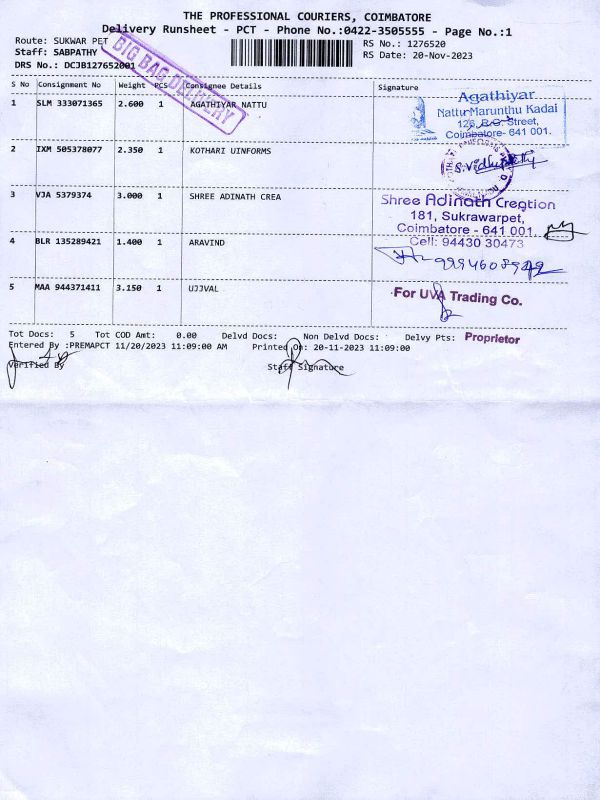 THE PROFESSIONAL COURIERS, COIMBATORE
Delivery Runsheet - PCT - Phone No.:0422-3505555 - Page No.:1
Route: SUKWAR PET
RS No.: 1276520
Staff: SABPATHY
RS Date: 20-Nov-2023
DRS No.: DCJB127652001
BIG BAG DELIVERY
S No Consignment No Weight PCS Consignee Details Signature
1 SLM 333071365 2.600 1 AGATHIYAR NATTU
Agathiyar
Nattu Marunthu Kadai
Street,
Coimbatore- 641 001.
2 IXM 505378077 2.350 1 KOTHARI UINFORMS
3 VJA 5379374 3.000 1 SHREE ADINATH CREA
Shree Adinath Creation
181, Sukrawarpet,
Coimbatore - 641 001.
Cell: 94430 30473
4 BLR 135289421 1.400 1 ARAVIND
5 MAA 944371411 3.150 1 UJJVAL
For UVA Trading Co.
Proprietor
Tot Docs: 5 Tot COD Amt: 0.00 Delvd Docs: Non Delvd Docs: Delvy Pts:
Entered By :PREMAPCT 11/20/2023 11:09:00 AM Printed On: 20-11-2023 11:09:00
Verified By Staff Signature